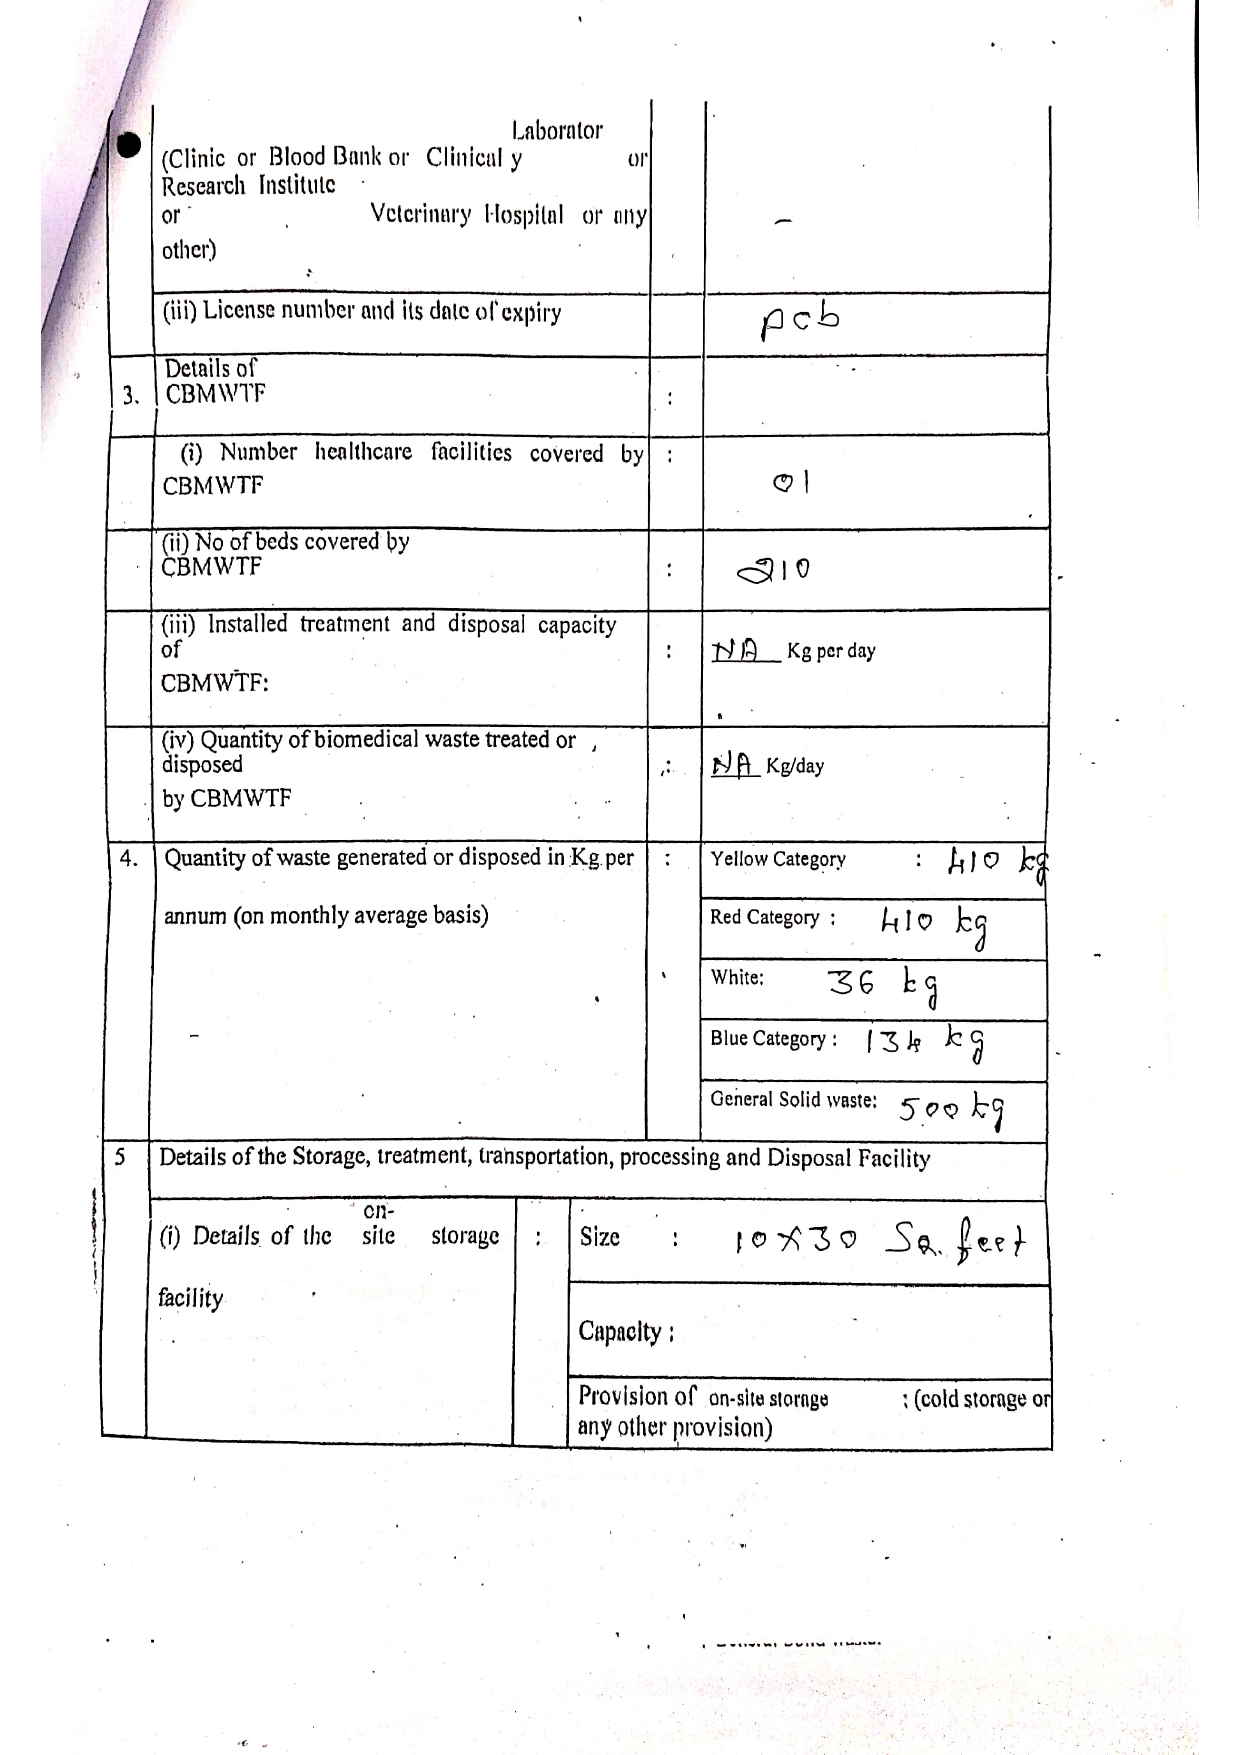 Laborator
(Clinic or Blood Bank or Clinical y or
Research Institute
or Veterinary Hospital or any –
other)
(iii) License number and its date of expiry pcb
Details of
3. CBMWTF :
(i) Number healthcare facilities covered by :
CBMWTF 01
(ii) No of beds covered by
CBMWTF : 210
(iii) Installed treatment and disposal capacity
of : NA Kg per day
CBMWTF:
(iv) Quantity of biomedical waste treated or
disposed : NA Kg/day
by CBMWTF
4. Quantity of waste generated or disposed in Kg per : Yellow Category : 410 kg
annum (on monthly average basis) Red Category : 410 kg
White: 36 kg
Blue Category : 134 kg
General Solid waste: 500 kg
5 Details of the Storage, treatment, transportation, processing and Disposal Facility
on-
(i) Details of the site storage : Size : 10X30 Sq. feet
facility
Capacity :
Provision of on-site storage : (cold storage or
any other provision)